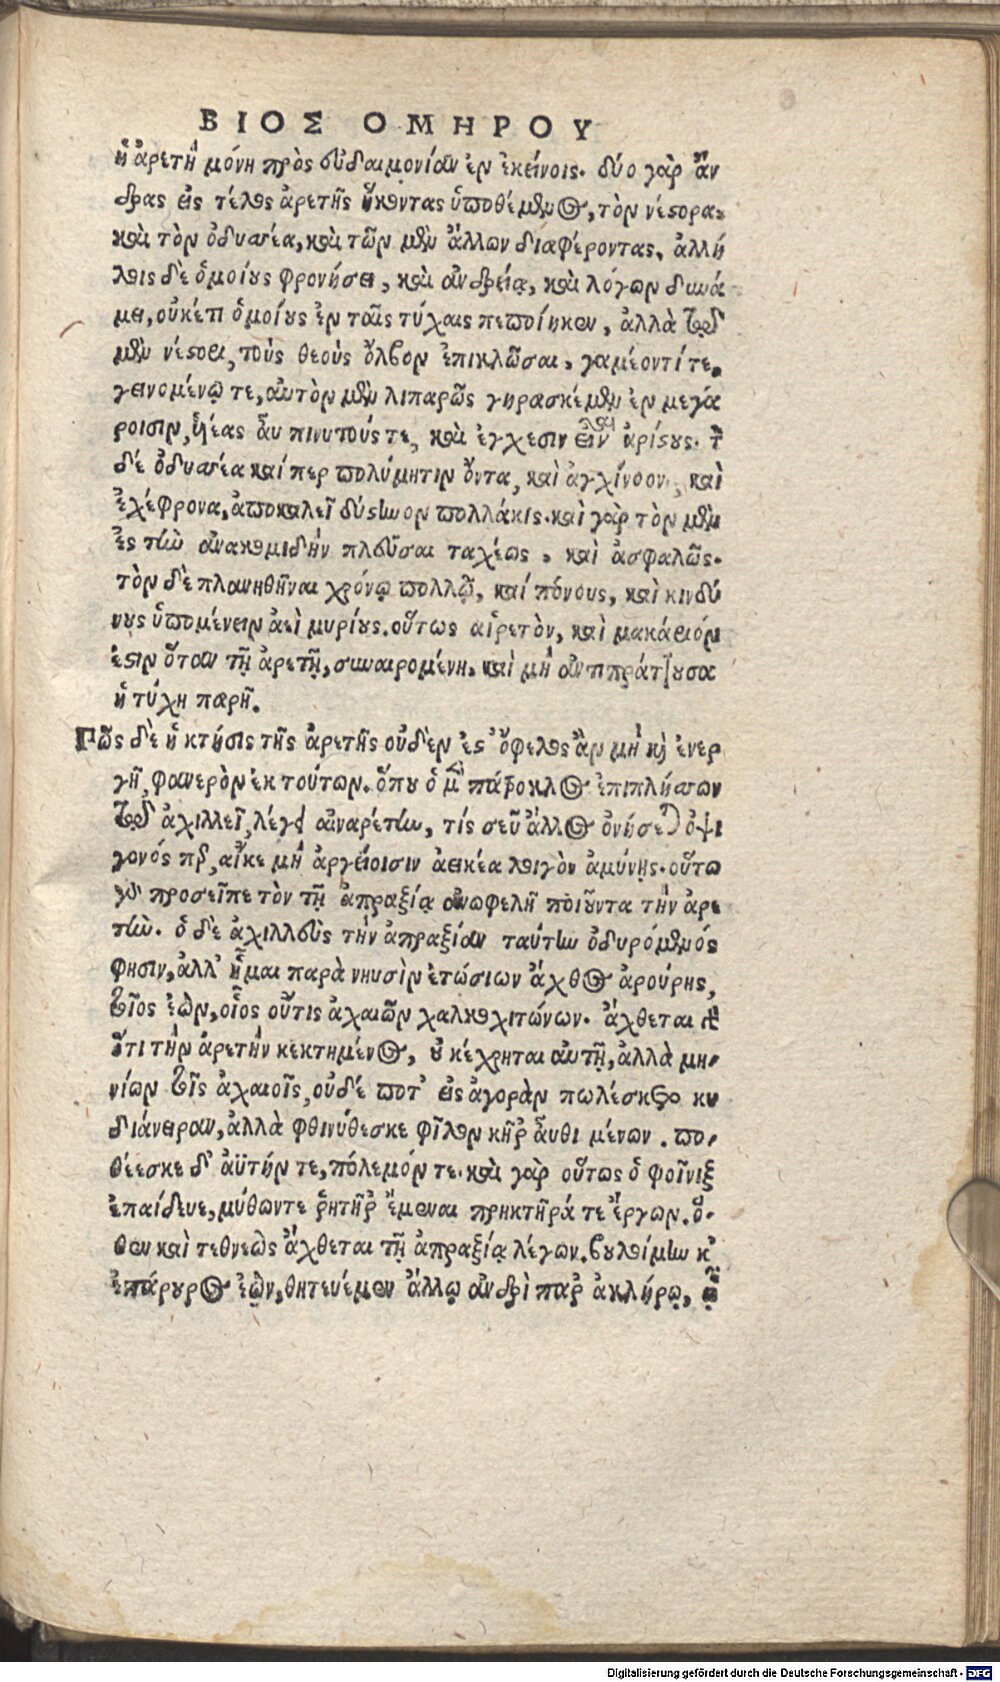 ΒΙΟΣ ΟΜΗΡΟΥ
ἡ ἀρετὴ μόνη πρὸς εὐδαιμονίαν ἐν ἐκείνοις. δύο γὰρ ἄν
δρας εἰς τέλος ἀρετῆς ἥκοντας ὑποθέμενος, τὸν νέστορα,
καὶ τὸν ὀδυσσέα, καὶ τῶν μὲν ἄλλων διαφέροντας, ἀλλή
λοις δὲ ὁμοίους φρονήσει, καὶ ἀνδρείᾳ, καὶ λόγων δυνά
μει, οὐκέτι ὁμοίους ἐν ταῖς τύχαις πεποίηκεν, ἀλλὰ τῷ
μὲν νέστορι, τοὺς θεοὺς ὄλβον ἐπικλῶσαι, γαμέοντί τε,
γεινομένῳ τε, αὐτὸν μὲν λιπαρῶς γηρασκέμεν ἐν μεγά
ροισιν, υἱέας αὖ πινυτούς τε, καὶ ἔγχεσιν εἶναι ἀρίστους. τὸν
δέ ὀδυσσέα καί περ πολύμητιν ὄντα, καὶ ἀγχίνοον, καὶ
ἐχέφρονα, ἀποκαλεῖ δύστηνον πολλάκις. καὶ γὰρ τὸν μὲν
ἐς τὴν ἀνακομιδὴν πλεῦσαι ταχέως, καὶ ἀσφαλῶς.
τὸν δὲ πλανηθῆναι χρόνῳ πολλῷ, καί πόνους, καὶ κινδύ
νους ὑπομένειν ἀεὶ μυρίους. οὕτως αἱρετὸν, καὶ μακάριόν
ἐστιν ὅταν τῇ ἀρετῇ, συναιρομένη, καὶ μὴ ἀντιπράττουσα
ἡ τύχη παρῇ.
Πῶς δὲ ἡ κτῆσις τῆς ἀρετῆς οὐδὲν ἐστ' ὄφελος ἂν μὴ καὶ ἐνερ
γῇ, φανερὸν ἐκ τούτων. ὅπου ὁ μὲν πάτροκλος ἐπιπλήσσων
τῷ ἀχιλλεῖ, λέγει αἰναρέτην, τίς σεῦ ἄλλος ὀνήσεται ὀψι
γονός περ, αἴκε μὴ ἀργείοισιν ἀεικέα λοιγὸν ἀμύνῃς. οὕτω
γὰρ προσεῖπε τὸν τῇ ἀπραξίᾳ ἀνωφελῆ ποιοῦντα τὴν ἀρε
τήν. ὁ δὲ ἀχιλλεὺς τὴν ἀπραξίαν ταύτην ὀδυρόμενός
φησιν, ἀλλ' ἧμαι παρὰ νηυσὶν ἐτώσιον ἄχθος ἀρούρης,
τοῖος ἐὼν, οἷος οὔτις ἀχαιῶν χαλκοχιτώνων. ἄχθεται γὰρ
ὅτι τὴν ἀρετὴν κεκτημένος, οὐ κέχρηται αὐτῇ, ἀλλὰ μη-
νίων τοῖς ἀχαιοῖς, οὐδέ ποτ' εἰς ἀγορὰν πωλέσκετο κυ
διάνειραν, ἀλλὰ φθινύθεσκε φῖλον κῆρ αὖθι μένων. πο-
θέεσκε δ' ἀϋτήν τε, πόλεμόν τε. καὶ γὰρ οὕτως ὁ φοῖνιξ
ἐπαίδευε, μύθωντε ῥητῆρ' ἔμεναι πρηκτῆρά τε ἔργων. ὅ-
θεν καὶ τεθνεὼς ἄχθεται τῇ ἀπραξίᾳ λέγων. βουλοίμην κ'
ἐπάρουρος ἐὼν, θητευέμεν ἄλλῳ ἀνδρὶ παρ' ἀκλήρῳ, ᾧ
Digitalisierung gefördert durch die Deutsche Forschungsgemeinschaft - DFG